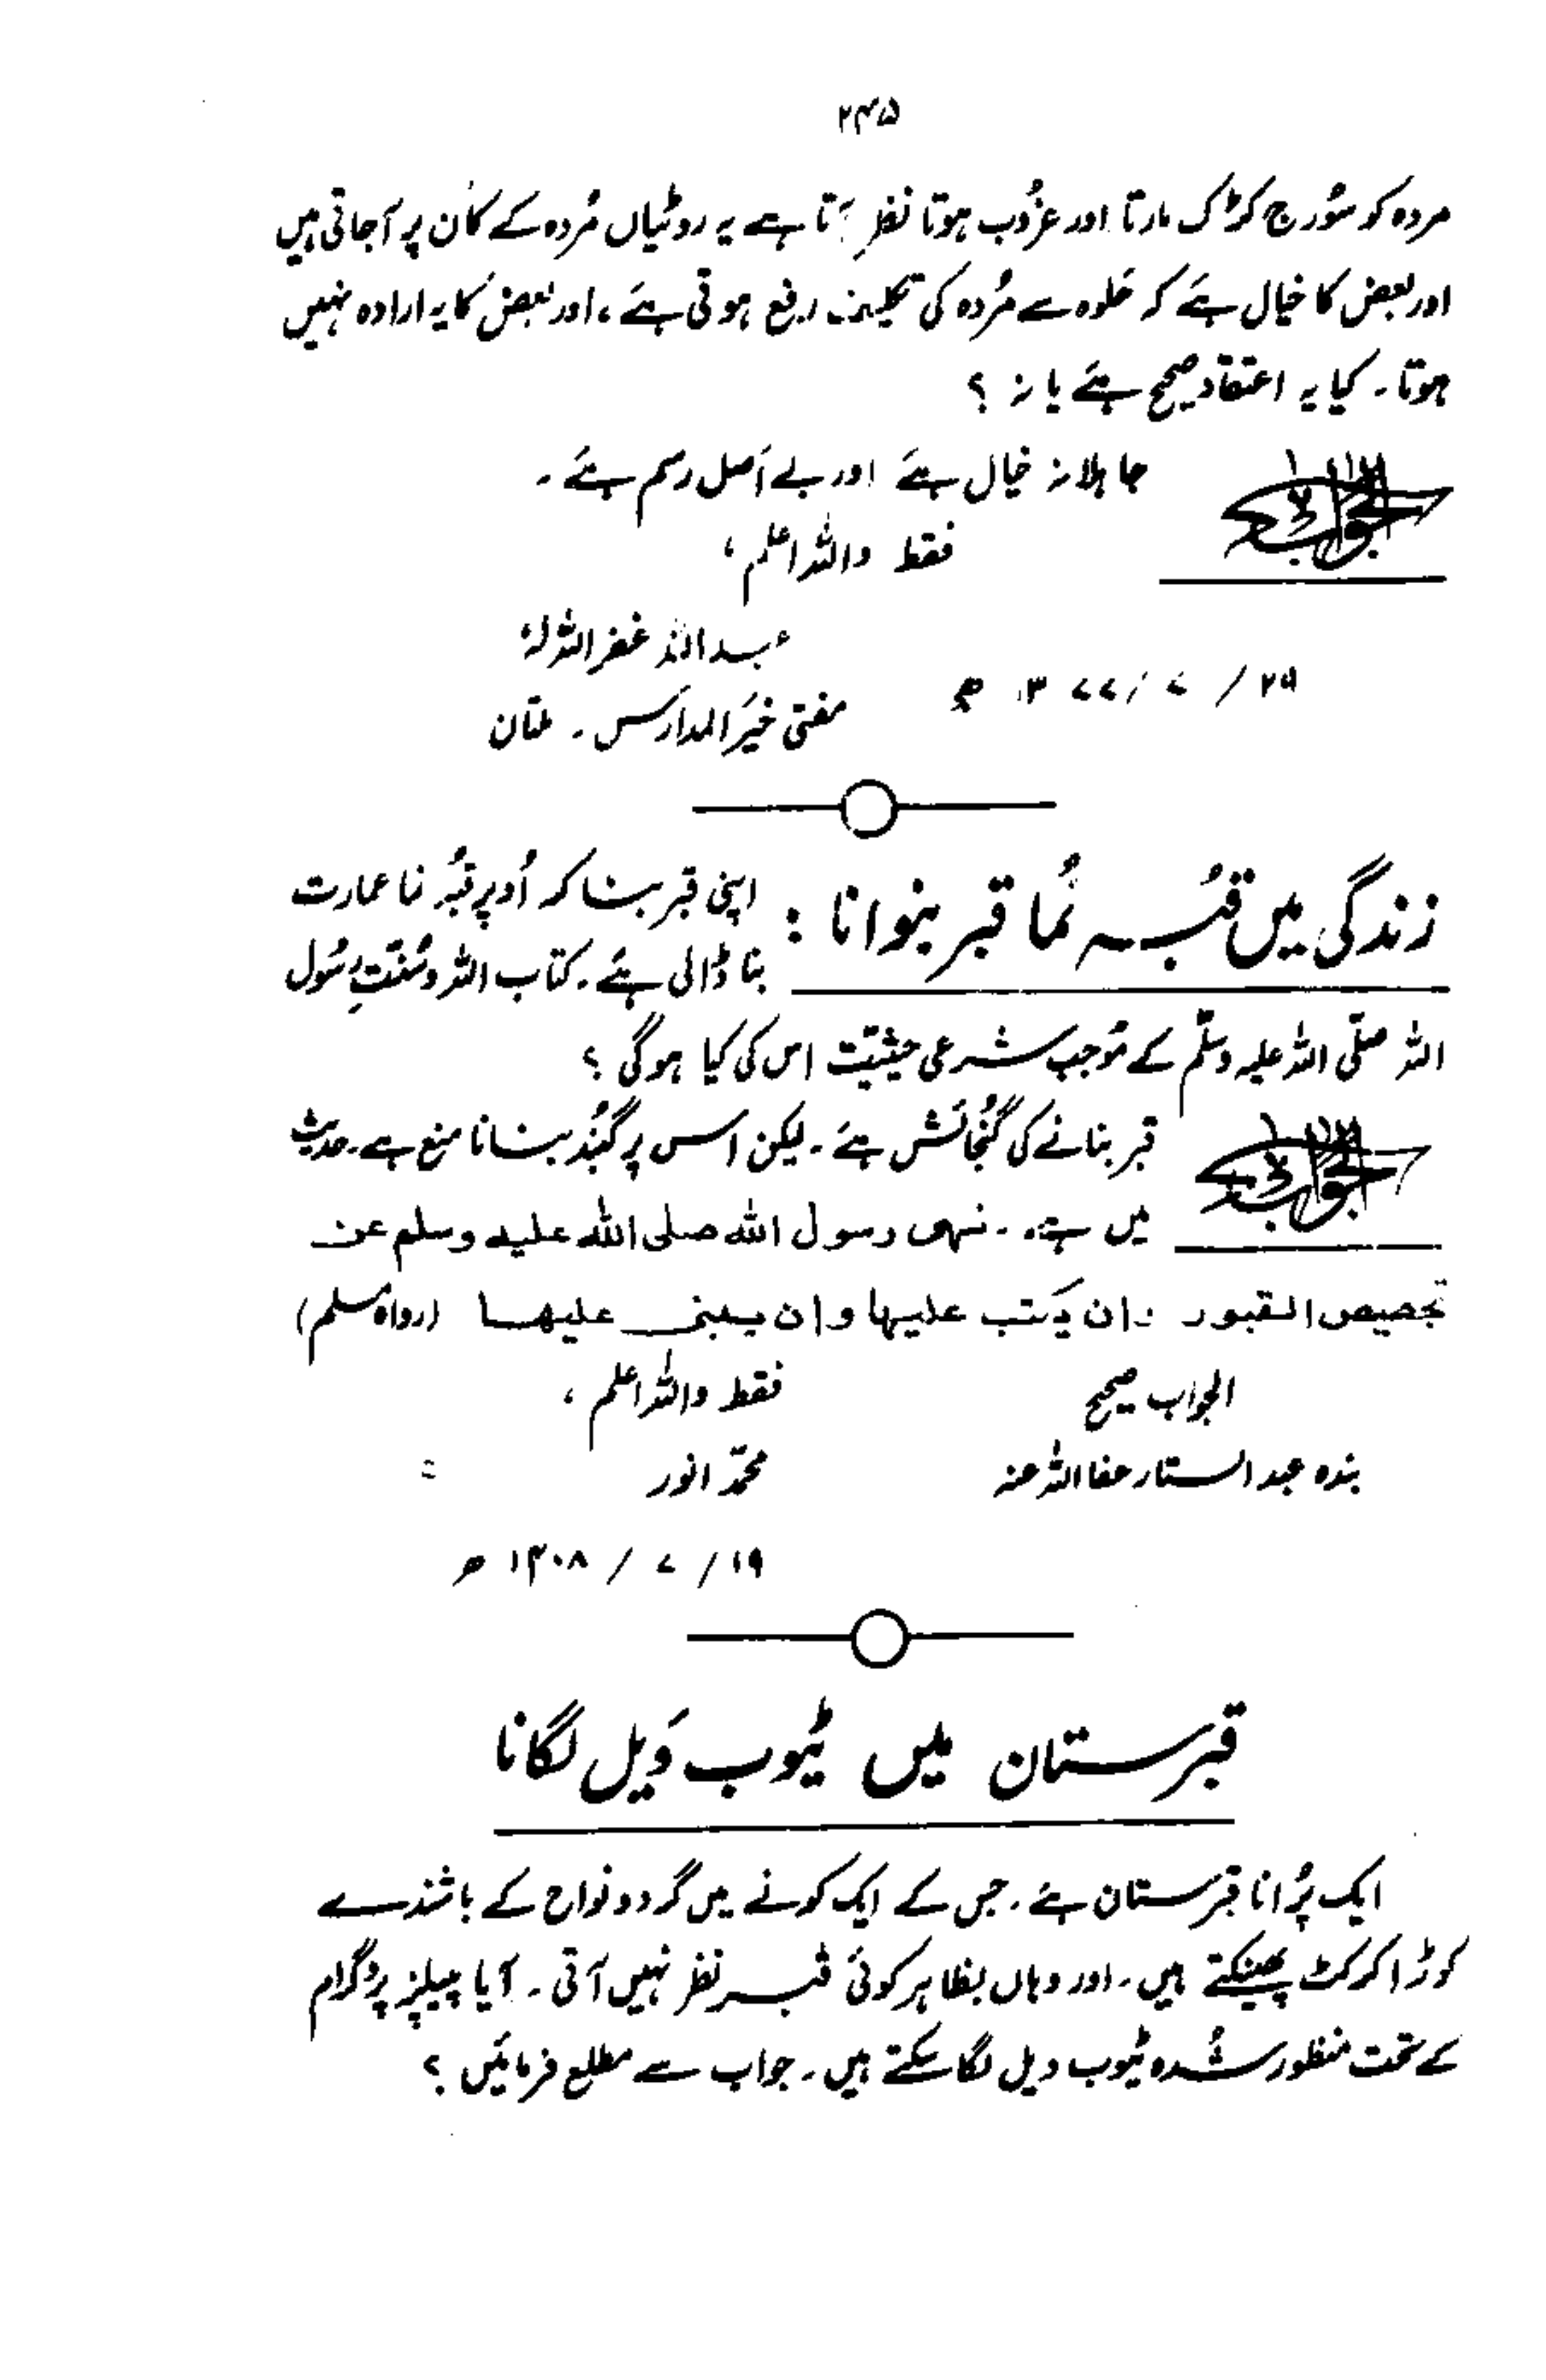 ۲۴۵
مردہ کو سُورج کڑاک مارتا اور غرُوب ہوتا نظر آتا ہے یہ روٹیاں مُردہ کے کان پر آجاتی ہیں
اور بعض کا خیال ہے کہ حَلوہ سے مُردہ کی تکلیف رفع ہوتی ہے ، اور بعض کا یہ ارادہ نہیں
ہوتا۔ کیا یہ اعتقاد صحیح ہے یا نہ ؟
الجواب جاہلانہ خیال ہے اور بے اَصل رسم ہے ۔
فقط واللہ اعلم ،
عبداللہ غفر اللہ لہٗ
مفتی خیرُ المدارس ۔ ملتان
۲۹/ ۷ / ۱۳۷۷ ھ
زندگی میں قبُہ نُما قبر بنوانا : اپنی قبر بنا کر اُوپر قبُہ نما عمارت
بنا ڈالی ہے ۔ کتاب اللہ و سُنّتِ رسُول
اللہ صلّی اللہ علیہ وسلّم کے مُوجب شرعی حیثیّت اس کی کیا ہوگی ؟
الجواب قبر بنانے کی گنُجائش ہے ۔ لیکن اس پر گنبُد بنانا منع ہے ۔ حدیث
میں ہے ۔ نہی رسول اللہ صلی اللہ علیہ وسلم عن
تجصیص القبور وان یکتب علیہا وان یبنی علیہا (رواہ مسلم)
الجواب صحیح فقط واللہ اعلم ،
بندہ عبد الستار عفا اللہ عنہ محمّد انور
۱۹/ ۷ / ۱۴۰۸ ھ
قبرستان میں ٹیُوب وَیل لگانا
ایک پُرانا قبرستان ہے ۔ جس کے ایک کونے میں گرد و نواح کے باشندے
کوڑا کرکٹ پھینکتے ہیں ۔ اور وہاں بظاہر کوئی قبر نظر نہیں آتی ۔ آیا پیپلز پروگرام
کے تحت منظور شُدہ ٹیُوب ویل لگا سکتے ہیں ۔ جواب سے مطلع فرمائیں ؟